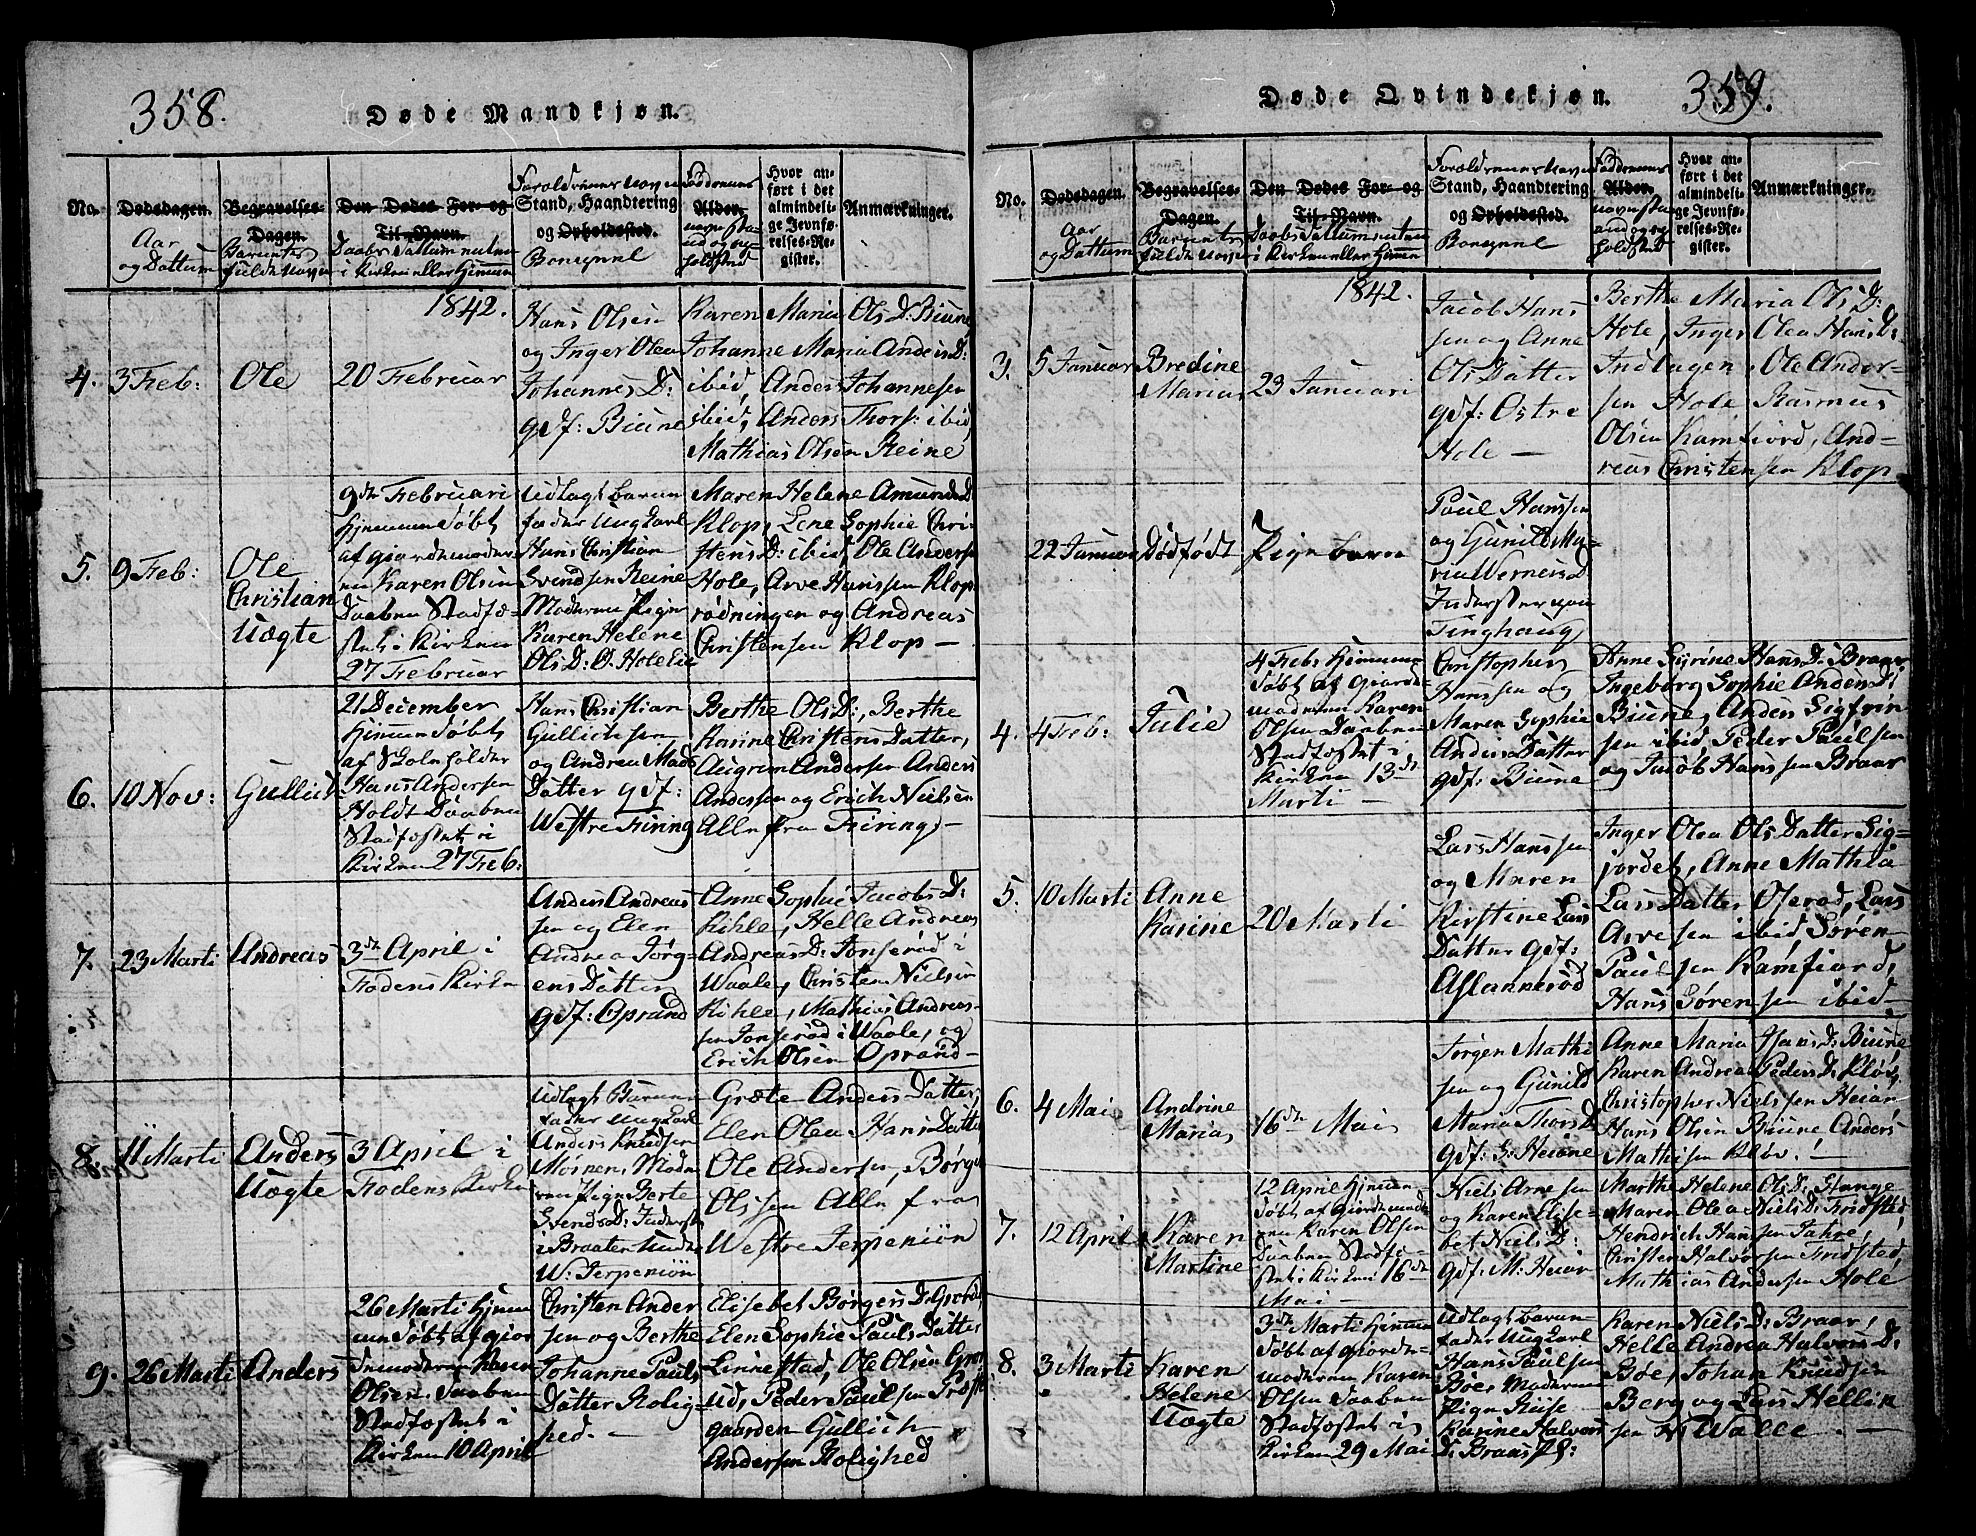 358.
Døde Mandkjøn.
No.
Dødsdagen.
Aar
og Dattum
Begravelses-
Dagen.
Barnets
fulde Navn
Den Dødes For- og
Til-Navn.
Daabs Dattum enten
i Kirken eller Hjemme
Forældrenes Navn
Stand, Haandtering
og Opholdssted.
Boesynel
Faddernes
Alder.
navn sta-
nd og op-
holdsted
Hvor an-
ført i det
almindeli-
ge Jevnfø-
relses-Re-
gister.
Anmærkninger.
1842.
4.
3 Feb:
Ole
20 Februar
Hans Olsen
og Inger Olea
Johannes D:
gdf: Biune
Karen Maria Ols D: Biune
Johanne Maria Anders D:
ibid, Anders Johannesen
ibid, Anders Thors: ibid
Mathias Olsen Reine
5.
9 Feb:
Ole
Christian
Uægte
9de Februari
hjemme døbt
af giordemoder
en Karen Olsen
Daaben Stadfæ-
stet i Kirken
27 Februar
Udlagt barne
fader Ungkarl
Hans Christian
Svendsen Reine
Moderen Pigen
Karen Helene
Ols D: Ø. Hole Eie
Maren Helene Amunds D
Klop, Lene Sophie Chri-
stens D: ibid, Ole Anders
Hole, Arve Hanssen Klop
rødningen og Andreas
Christensen Klop —
6.
10 Nov:
Gullich
21 December
hjemme døbt
af Skoleholder
Hans Andersen
Holdt Daaben
Stadfæstet i
Kirken 27 Feb:
Hans Christian
Gullichsen
og Andrea Mads
Datter gdf:
Westre Firing
Berthe Ols D:, Berthe
Karine Christens Datter,
Augrim Andersen Anders
Anderssen og Erich Nielsen
Alle fra Firing —
7.
23 Marti
Andreas
3de April i
Fodens Kirke
Anders Andreas
sen og Elen
Andrea Jørg-
ens Datter
gdf: Oprand
Anne Sophie Jacobs D:
Kihle, Helle Andreas
Andreas D: Jonserød i
Waale, Christen Nielsen
Kihle, Mathias Andreas-
sen Jonserød i Waale, og
Erich Olsen Oprand —
8.
11 Marti
Anders
Uægte
3 April i
Fodens Kirke
Udlagt Barne
fader Ungkarl
Anders Knudsen
Mørnen, Mode
ren Pige Berte
Svends D: Inderst
i Braaten under
W: Jerpeniøn
Grete Anders Datter,
Elen Olea Hans Datter
Ole Andersen, Børge
Olssen Alle fra
Westre Jerpeniøn
9.
26 Marti
Anders
26 Marti hjem
me døbt af gior
demoderen Karen
Olsen, Daaben
Stadfæstet i
Kirken 10 April
Christen Ander
sen og Berthe
Johanne Pauls
Datter Rolig-
hed. —
Elisebet Børgers D:
Elen Sophie Pauls Datter
Linnestad, Ole Olsen
Peder Paulsen Præste
gaarden Gullich
Andersen Rolighed
359.
Døde Qvindekjøn.
No.
Dødsdagen.
Aar
og Dattum
Begravelses-
Dagen.
Barnets
fulde Navn
Den Dødes For- og
Til-Navn.
Daabs Dattum enten
i Kirken eller Hjemme
Forældrenes Navn
Stand, Haandtering
og Opholdssted.
Boesynel
Faddernes
Alder.
navn sta-
nd og op-
holdsted
Hvor an-
ført i det
almindeli-
ge Jevnfø-
relses-Re-
gister.
Anmærkninger.
1842.
3.
5 Januar
Bredine
Maria
23 Januari
Jacob Hans
sen og Anne
Ols Datter
gdf: Østre
Hole —
Berthe Maria Ols D:
Hole, Inger Olea Hans D:
Indlagen, Ole Ander-
sen Hole Rasmus
Olsen Ramfiord, And-
reas Christensen Klop
22 Januar
Dødfødt
Pige barn
Paul Hanssen
og Gunild Ma-
ria Werners D
Inderster paa
Tinghaug
4.
4 Feb:
Julie
4 Feb: hjemme
døbt af giorde-
moderen Karen
Olsen Daaben
Stadfæstet i
Kirken 13de
Marti —
Christopher
Hanssen og
Maren Sophie
Anders Datter
gdf: Biune
Anne Sirine Hans D: Braar
Ingeborg Sophie Anders D:
Biune, Anders Sigfrin
sen ibid, Peder Paulsen
og Jacob Hanssen Braar
5.
10 Marti
Anne
Karine
20 Marti
Lars Hanssen
og Maren
Kirstine Lars
Datter gdf:
Aslannerød
Inger Olea Ols Datter Sig-
jordet, Anne Mathea
Lars Datter Olerød, Lars
Arvesen ibid Søren
Paulsen Ramfiord,
Hans Sørensen ibid —
6.
4 Mai
Andrine
Maria
16de Mai
Jørgen Mathi
sen og Gunild
Maria Thors D
gdf: S: Heiane
Anne Maria Hans D: Biune
Karen Andrea Peders D: Kløv,
Christopher Nielssen Heian
Hans Olsen Biune Anders
Mathisen Kløv. —
7.
12 April
Karen
Martine
12 April hjemme
døbt af giordemoder
en Karen Olsen
Daaben Stadfæ-
stet i Kirken 16de
Mai —
Niels Arnesen
og Karen Elise-
bet Niels D:
gdf: M: Heiar
Marthe Helene Ols D: Hange
Maren Olea Niels D: Fridsted
Hendrich Hanssen Fahre,
Christen Halvorsen Fridsted,
Mathias Andersen Hole
8.
3 Marti
Karen
Helene
Uægte
3de Marti hjemme
døbt af giorde-
moderen Karen
Olsen Daaben
Stadfæstet i
Kirken 29 Mai
Udlagt barne
fader Ungkarl
Hans Paulsen
Bøe, Moderen
Pige
Karine Halvors
D: Braar
Karen Niels D: Braar,
Helle Andrea Halvors D:
Bøe, Johan Knudsen
Berg og Lars Hellin
sen N: Walle. —